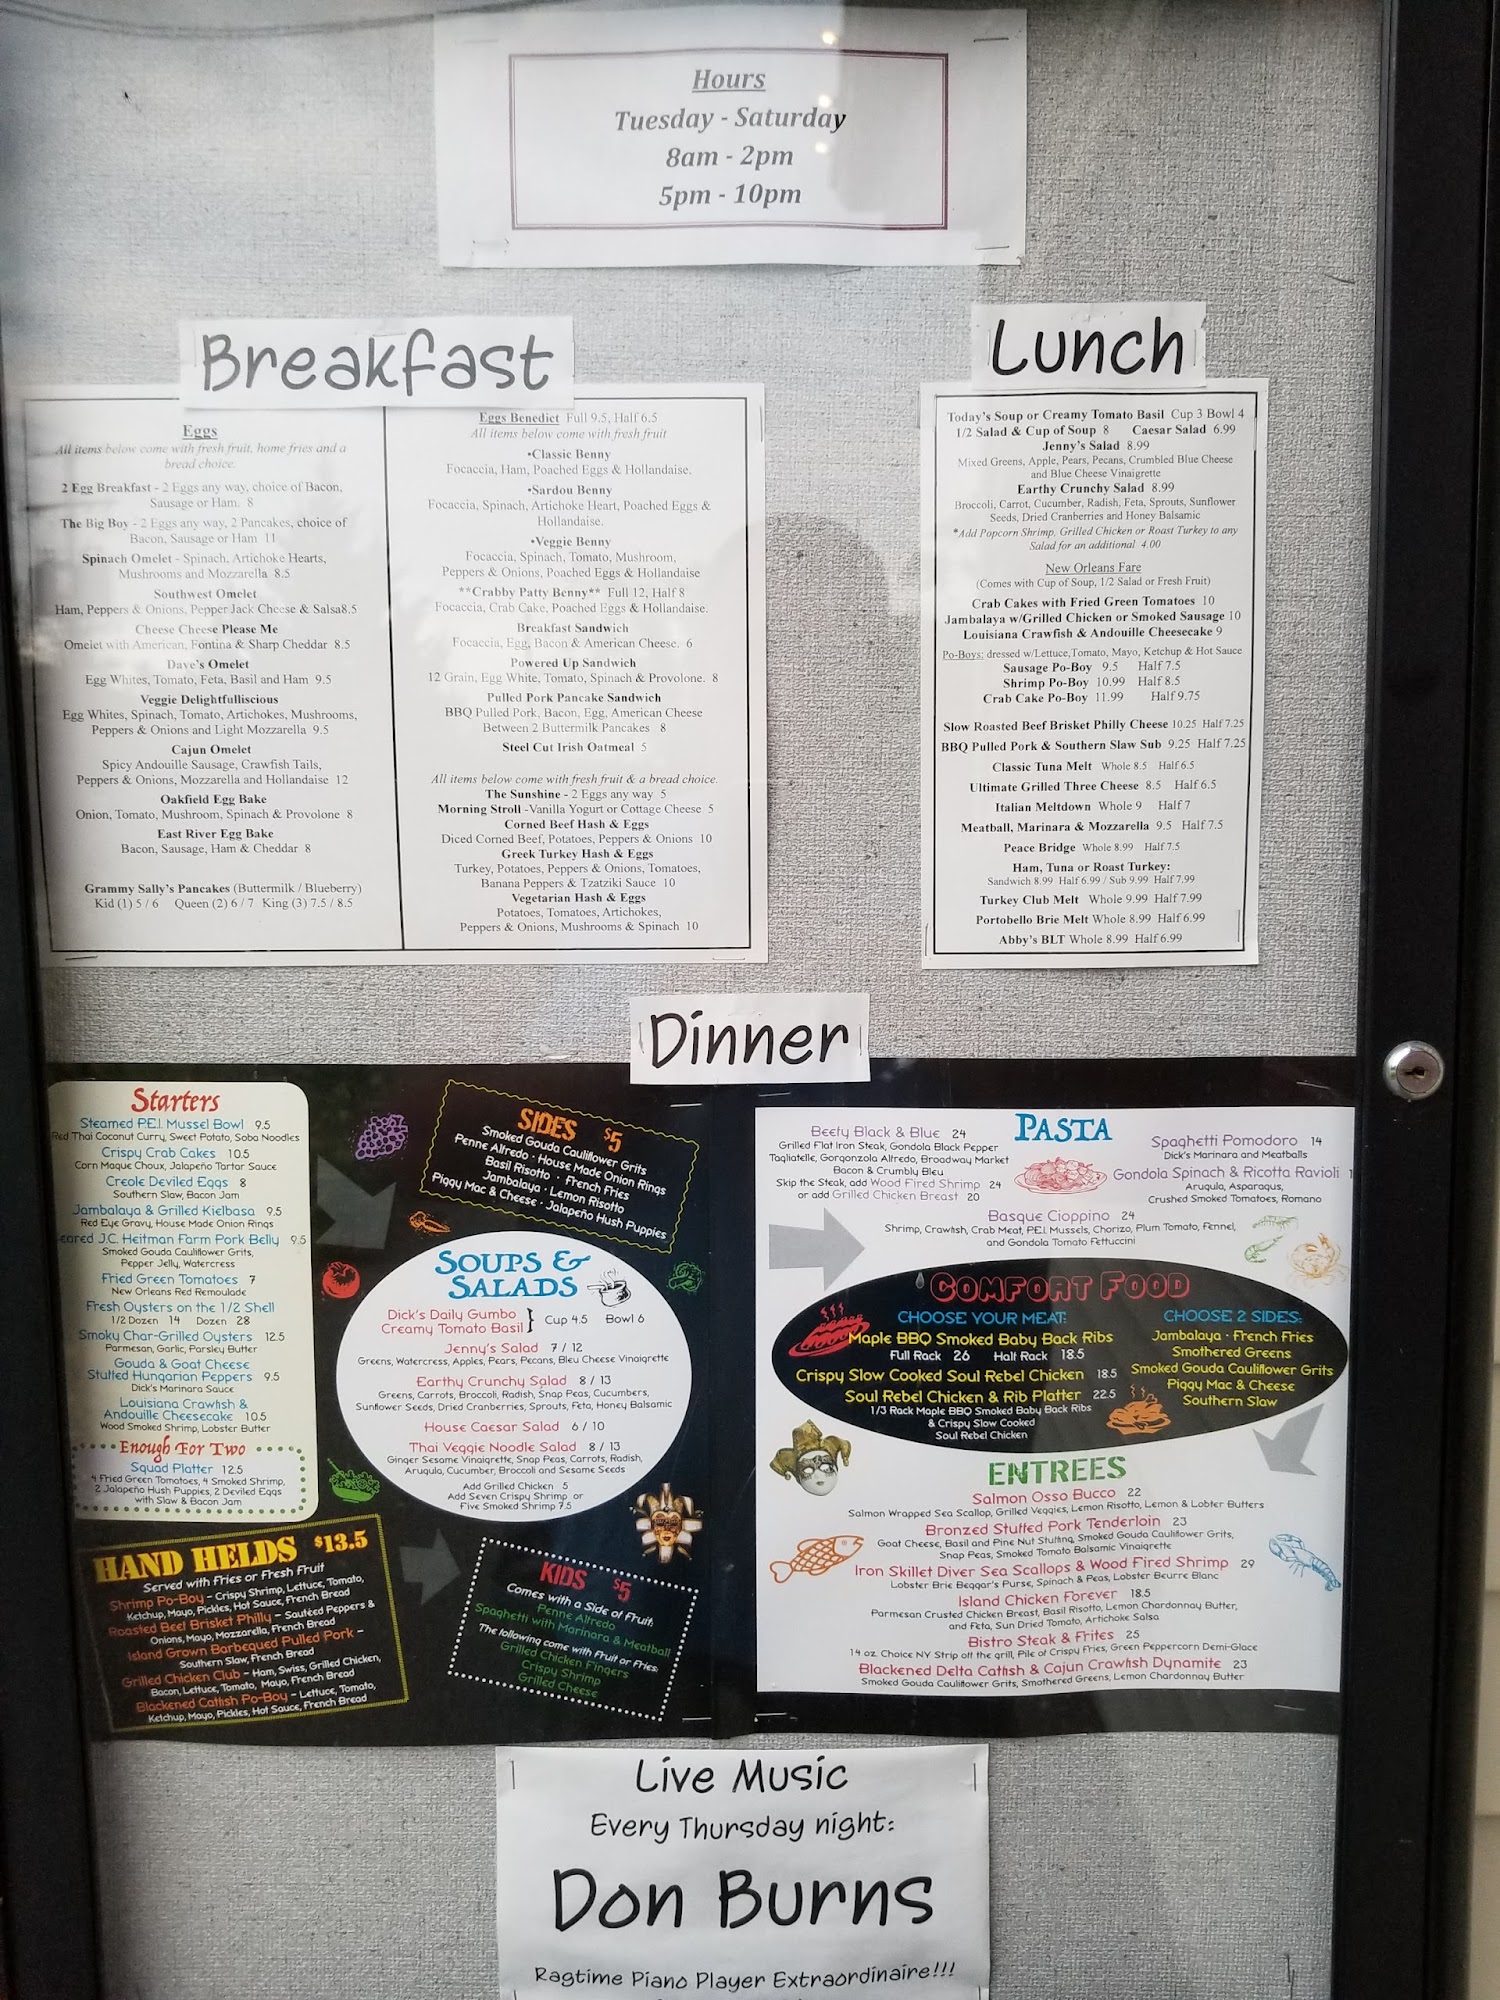 Hours
Tuesday - Saturday
8am - 2pm
5pm - 10pm
Breakfast
Eggs
All items below come with fresh fruit, home fries and a
bread choice.
2 Egg Breakfast - 2 Eggs any way, choice of Bacon,
Sausage or Ham. 8
The Big Boy - 2 Eggs any way, 2 Pancakes, choice of
Bacon, Sausage or Ham 11
Spinach Omelet - Spinach, Artichoke Hearts,
Mushrooms and Mozzarella 8.5
Southwest Omelet
Ham, Peppers & Onions, Pepper Jack Cheese & Salsa8.5
Cheese Cheese Please Me
Omelet with American, Fontina & Sharp Cheddar 8.5
Dave's Omelet
Egg Whites, Tomato, Feta, Basil and Ham 9.5
Veggie Delightfulliscious
Egg Whites, Spinach, Tomato, Artichokes, Mushrooms,
Peppers & Onions and Light Mozzarella 9.5
Cajun Omelet
Spicy Andouille Sausage, Crawfish Tails,
Peppers & Onions, Mozzarella and Hollandaise 12
Oakfield Egg Bake
Onion, Tomato, Mushroom, Spinach & Provolone 8
East River Egg Bake
Bacon, Sausage, Ham & Cheddar 8
Grammy Sally's Pancakes (Buttermilk / Blueberry)
Kid (1) 5 / 6 Queen (2) 6 / 7 King (3) 7.5 / 8.5
Eggs Benedict Full 9.5, Half 6.5
All items below come with fresh fruit
•Classic Benny
Focaccia, Ham, Poached Eggs & Hollandaise.
•Sardou Benny
Focaccia, Spinach, Artichoke Heart, Poached Eggs &
Hollandaise.
•Veggie Benny
Focaccia, Spinach, Tomato, Mushroom,
Peppers & Onions, Poached Eggs & Hollandaise
**Crabby Patty Benny** Full 12, Half 8
Focaccia, Crab Cake, Poached Eggs & Hollandaise.
Breakfast Sandwich
Focaccia, Egg, Bacon & American Cheese. 6
Powered Up Sandwich
12 Grain, Egg White, Tomato, Spinach & Provolone. 8
Pulled Pork Pancake Sandwich
BBQ Pulled Pork, Bacon, Egg, American Cheese
Between 2 Buttermilk Pancakes 8
Steel Cut Irish Oatmeal 5
All items below come with fresh fruit & a bread choice.
The Sunshine - 2 Eggs any way 5
Morning Stroll -Vanilla Yogurt or Cottage Cheese 5
Corned Beef Hash & Eggs
Diced Corned Beef, Potatoes, Peppers & Onions 10
Greek Turkey Hash & Eggs
Turkey, Potatoes, Peppers & Onions, Tomatoes,
Banana Peppers & Tzatziki Sauce 10
Vegetarian Hash & Eggs
Potatoes, Tomatoes, Artichokes,
Peppers & Onions, Mushrooms & Spinach 10
Lunch
Today's Soup or Creamy Tomato Basil Cup 3 Bowl 4
1/2 Salad & Cup of Soup 8 Caesar Salad 6.99
Jenny's Salad 8.99
Mixed Greens, Apple, Pears, Pecans, Crumbled Blue Cheese
and Blue Cheese Vinaigrette
Earthy Crunchy Salad 8.99
Broccoli, Carrot, Cucumber, Radish, Feta, Sprouts, Sunflower
Seeds, Dried Cranberries and Honey Balsamic
*Add Popcorn Shrimp, Grilled Chicken or Roast Turkey to any
Salad for an additional 4.00
New Orleans Fare
(Comes with Cup of Soup, 1/2 Salad or Fresh Fruit)
Crab Cakes with Fried Green Tomatoes 10
Jambalaya w/Grilled Chicken or Smoked Sausage 10
Louisiana Crawfish & Andouille Cheesecake 9
Po-Boys: dressed w/Lettuce,Tomato, Mayo, Ketchup & Hot Sauce
Sausage Po-Boy 9.5 Half 7.5
Shrimp Po-Boy 10.99 Half 8.5
Crab Cake Po-Boy 11.99 Half 9.75
Slow Roasted Beef Brisket Philly Cheese 10.25 Half 7.25
BBQ Pulled Pork & Southern Slaw Sub 9.25 Half 7.25
Classic Tuna Melt Whole 8.5 Half 6.5
Ultimate Grilled Three Cheese 8.5 Half 6.5
Italian Meltdown Whole 9 Half 7
Meatball, Marinara & Mozzarella 9.5 Half 7.5
Peace Bridge Whole 8.99 Half 7.5
Ham, Tuna or Roast Turkey:
Sandwich 8.99 Half 6.99 / Sub 9.99 Half 7.99
Turkey Club Melt Whole 9.99 Half 7.99
Portobello Brie Melt Whole 8.99 Half 6.99
Abby's BLT Whole 8.99 Half 6.99
Dinner
Starters
Steamed P.E.I. Mussel Bowl 9.5
Red Thai Coconut Curry, Sweet Potato, Soba Noodles
Crispy Crab Cakes 10.5
Corn Maque Choux, Jalapeño Tartar Sauce
Creole Deviled Eggs 8
Southern Slaw, Bacon Jam
Jambalaya & Grilled Kielbasa 9.5
Red Eye Gravy, House Made Onion Rings
eared J.C. Heitman Farm Pork Belly 9.5
Smoked Gouda Cauliflower Grits,
Pepper Jelly, Watercress
Fried Green Tomatoes 7
New Orleans Red Remoulade
Fresh Oysters on the 1/2 Shell
1/2 Dozen 14 Dozen 28
Smoky Char-Grilled Oysters 12.5
Parmesan, Garlic, Parsley Butter
Gouda & Goat Cheese
Stuffed Hungarian Peppers 9.5
Dick's Marinara Sauce
Louisiana Crawfish &
Andouille Cheesecake 10.5
Wood Smoked Shrimp, Lobster Butter
Enough For Two
Squad Platter 12.5
4 Fried Green Tomatoes, 4 Smoked Shrimp,
2 Jalapeño Hush Puppies, 2 Deviled Eggs
with Slaw & Bacon Jam
HAND HELDS $13.5
Served with Fries or Fresh Fruit
Shrimp Po-Boy - Crispy Shrimp, Lettuce, Tomato,
Ketchup, Mayo, Pickles, Hot Sauce, French Bread
Roasted Beef Brisket Philly - Sautéed Peppers &
Onions, Mayo, Mozzarella, French Bread
Island Grown Barbequed Pulled Pork -
Southern Slaw, French Bread
Grilled Chicken Club - Ham, Swiss, Grilled Chicken,
Bacon, Lettuce, Tomato, Mayo, French Bread
Blackened Catfish Po-Boy - Lettuce, Tomato,
Ketchup, Mayo, Pickles, Hot Sauce, French Bread
SIDES $5
Smoked Gouda Cauliflower Grits
Penne Alfredo · House Made Onion Rings
Basil Risotto · French Fries
Jambalaya · Lemon Risotto
Piggy Mac & Cheese · Jalapeño Hush Puppies
SOUPS &
SALADS
Dick's Daily Gumbo
Creamy Tomato Basil } Cup 4.5 Bowl 6
Jenny's Salad 7 / 12
Greens, Watercress, Apples, Pears, Pecans, Bleu Cheese Vinaigrette
Earthy Crunchy Salad 8 / 13
Greens, Carrots, Broccoli, Radish, Snap Peas, Cucumbers,
Sunflower Seeds, Dried Cranberries, Sprouts, Feta, Honey Balsamic
House Caesar Salad 6 / 10
Thai Veggie Noodle Salad 8 / 13
Ginger Sesame Vinaigrette, Snap Peas, Carrots, Radish,
Arugula, Cucumber, Broccoli and Sesame Seeds
Add Grilled Chicken 5
Add Seven Crispy Shrimp or
Five Smoked Shrimp 7.5
KIDS $5
Comes with a Side of Fruit:
Penne Alfredo
Spaghetti with Marinara & Meatball
The following come with Fruit or Fries:
Grilled Chicken Fingers
Crispy Shrimp
Grilled Cheese
PASTA
Beefy Black & Blue 24
Grilled Flat Iron Steak, Gondola Black Pepper
Tagliatelle, Gorgonzola Alfredo, Broadway Market
Bacon & Crumbly Bleu
Skip the Steak, add Wood Fired Shrimp 24
or add Grilled Chicken Breast 20
Spaghetti Pomodoro 14
Dick's Marinara and Meatballs
Gondola Spinach & Ricotta Ravioli
Arugula, Asparagus,
Crushed Smoked Tomatoes, Romano
Basque Cioppino 24
Shrimp, Crawfish, Crab Meat, P.E.I. Mussels, Chorizo, Plum Tomato, Fennel,
and Gondola Tomato Fettuccini
COMFORT FOOD
CHOOSE YOUR MEAT:
Maple BBQ Smoked Baby Back Ribs
Full Rack 26 Half Rack 18.5
Crispy Slow Cooked Soul Rebel Chicken 18.5
Soul Rebel Chicken & Rib Platter 22.5
1/3 Rack Maple BBQ Smoked Baby Back Ribs
& Crispy Slow Cooked
Soul Rebel Chicken
CHOOSE 2 SIDES:
Jambalaya · French Fries
Smothered Greens
Smoked Gouda Cauliflower Grits
Piggy Mac & Cheese
Southern Slaw
ENTREES
Salmon Osso Bucco 22
Salmon Wrapped Sea Scallop, Grilled Veggies, Lemon Risotto, Lemon & Lobter Butters
Bronzed Stuffed Pork Tenderloin 23
Goat Cheese, Basil and Pine Nut Stuffing, Smoked Gouda Cauliflower Grits,
Snap Peas, Smoked Tomato Balsamic Vinaigrette
Iron Skillet Diver Sea Scallops & Wood Fired Shrimp 29
Lobster Brie Beggar's Purse, Spinach & Peas, Lobster Beurre Blanc
Island Chicken Forever 18.5
Parmesan Crusted Chicken Breast, Basil Risotto, Lemon Chardonnay Butter,
and Feta, Sun Dried Tomato, Artichoke Salsa
Bistro Steak & Frites 25
14 oz. Choice NY Strip off the grill, Pile of Crispy Fries, Green Peppercorn Demi-Glace
Blackened Delta Catfish & Cajun Crawfish Dynamite 23
Smoked Gouda Cauliflower Grits, Smothered Greens, Lemon Chardonnay Butter
Live Music
Every Thursday night:
Don Burns
Ragtime Piano Player Extraordinaire!!!